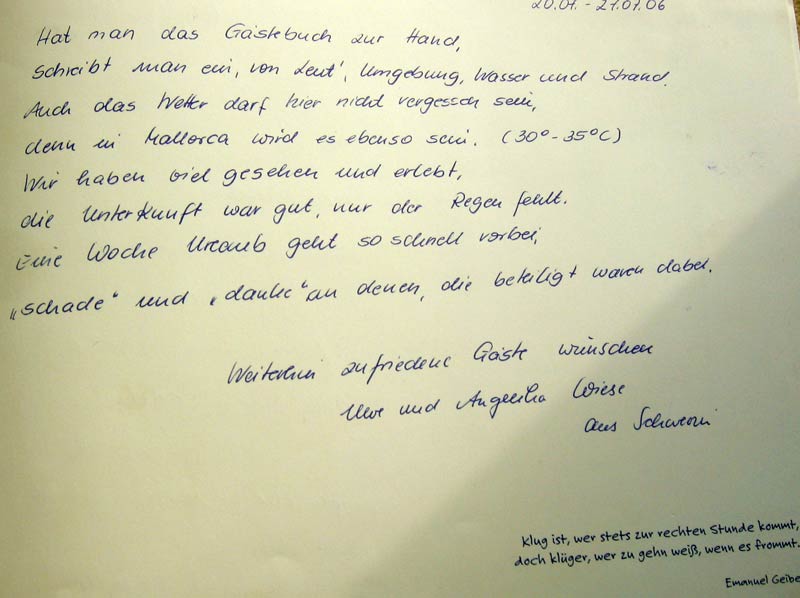 20.07. - 27.07.06
Hat man das Gästebuch zur Hand,
schreibt man ein, von Leut', Umgebung, Wasser und Strand.
Auch das Wetter darf hier nicht vergessen sein,
denn in Mallorca wird es ebenso sein. (30° - 35°C)
Wir haben viel gesehen und erlebt,
die Unterkunft war gut, nur der Regen fehlt.
Eine Woche Urlaub geht so schnell vorbei,
„schade" und „danke" an denen, die beteiligt waren dabei.
Weiterhin zufriedene Gäste wünschen
Uwe und Angelika Wiese
aus Schwerin
Klug ist, wer stets zur rechten Stunde kommt,
doch klüger, wer zu gehn weiß, wenn es frommt.
Emanuel Geibe